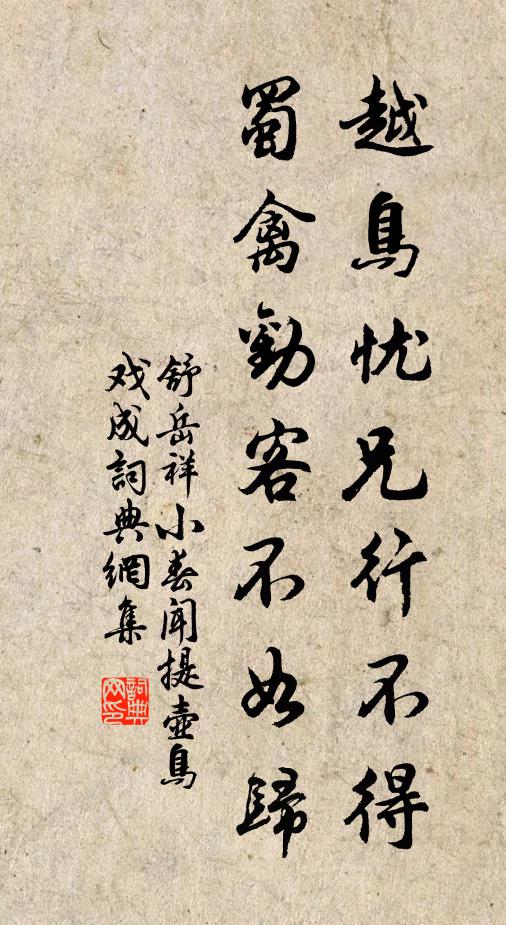 越鳥忧兄行不得
蜀禽勸客不如歸
舒岳祥小春聞提壺鳥
戏成詞典網集
詞典网印